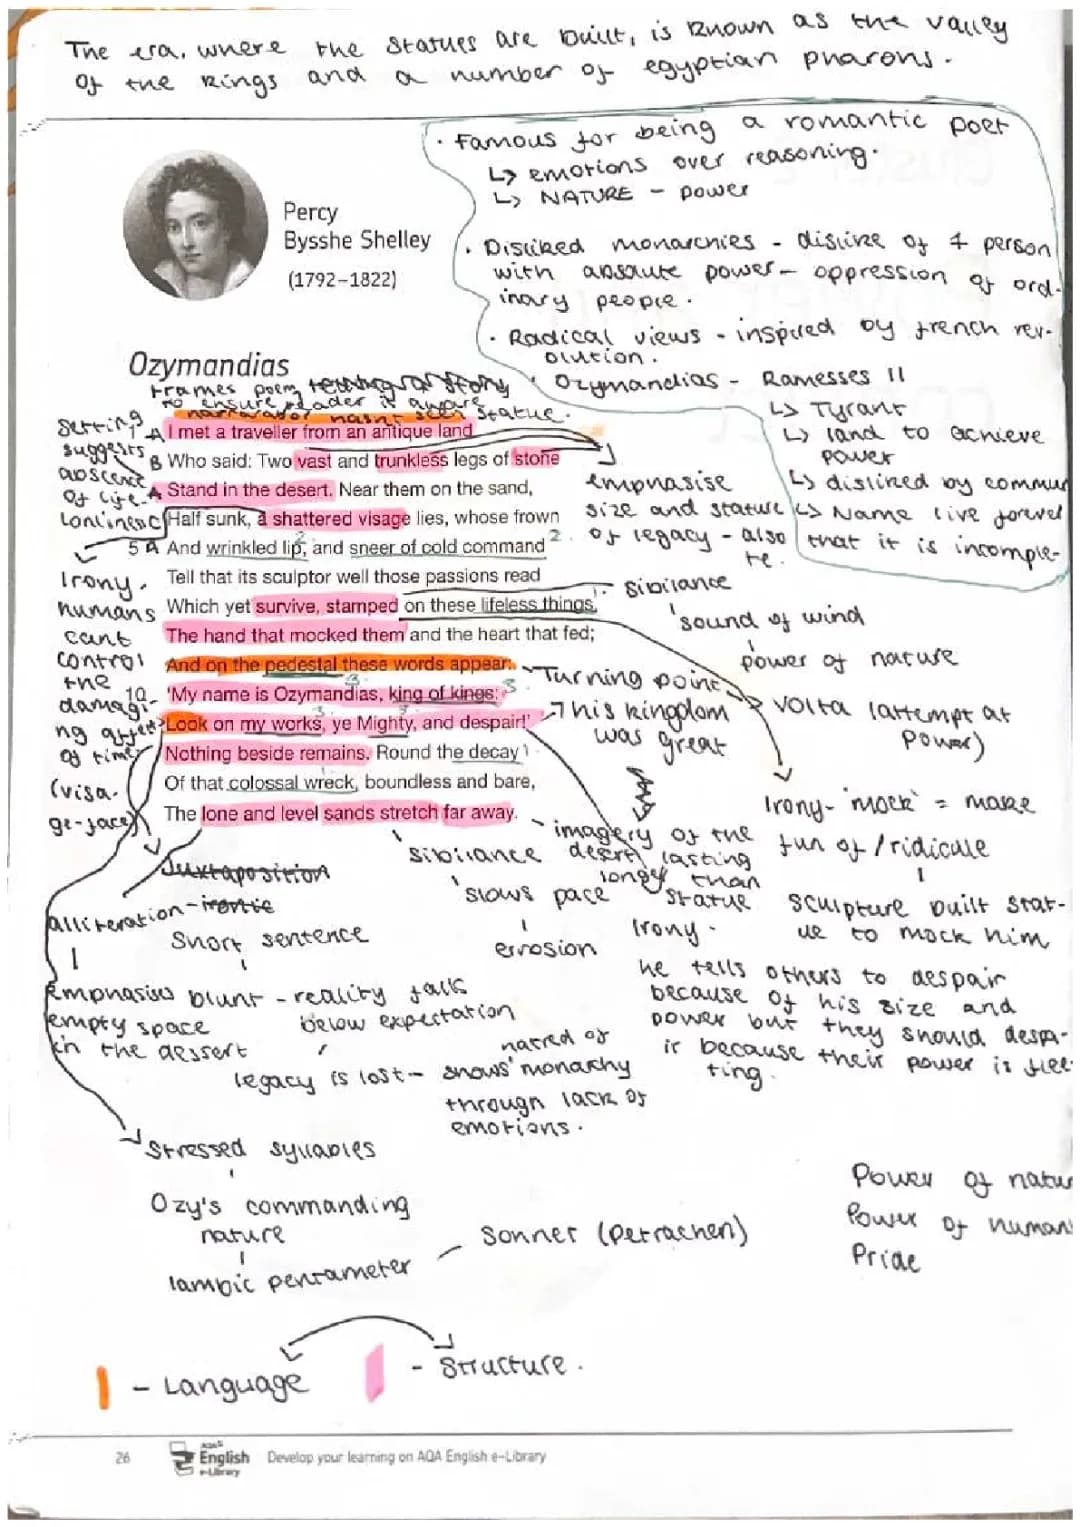 The era, where the statues are built, is known as the valley
of the kings and a number of egyptian pharons.
· Famous for being a romantic poet
↳ emotions over reasoning.
↳ NATURE - power
Percy
Bysshe Shelley
(1792–1822)
· Disliked monarchies - dislike of 1 person
with absolute power - oppression of ord-
inary people.
· Radical views - inspired by french rev-
olution.
· Ozymandias - Ramesses II
↳ Tyrant
↳ land to achieve
power
↳ disliked by commun
↳ Name live forever
Ozymandias
frames poem
to ensure reader is aware
narrarator hasn't seen statue.
Setting
suggests
abscence
of life.
Lonliness
A I met a traveller from an antique land
B Who said: Two vast and trunkless legs of stone
A Stand in the desert. Near them on the sand,
Half sunk, a shattered visage lies, whose frown
5 A And wrinkled lip, and sneer of cold command
Tell that its sculptor well those passions read
Which yet survive, stamped on these lifeless things,
The hand that mocked them and the heart that fed;
And on the pedestal these words appear:
10 'My name is Ozymandias, king of kings:
Look on my works, ye Mighty, and despair!'
Nothing beside remains. Round the decay
Of that colossal wreck, boundless and bare,
The lone and level sands stretch far away.
emphasise
size and stature
of legacy - also that it is incomple-
te.
Irony.
humans
cant
control
the
damagi-
ng affect
of time
(visa-
ge-face)
sibilance
sound of wind
power of nature
Turning point
volta (attempt at
power)
His kingdom
was great
Irony - 'mock' = make
fun of / ridicule
sculpture built stat-
ue to mock him
imagery of the
desert lasting
longer than
statue
sibilance
slows pace
errosion
Irony.
he tells others to despair
because of his size and
power but they should despa-
ir because their power is flee-
ting.
Juxtaposition
alliteration -
Emphasises
empty space
in the dessert
Short sentence
blunt - reality falls
below expectation
legacy is lost - shows hatred of monarchy
through lack of
emotions.
Stressed syllables
Ozy's commanding
nature
Iambic pentameter
Sonner (Petrachen)
Power of natur
Power of human
Pride
- Language
- Structure.
26
AQA
English
e-Library
Develop your learning on AQA English e-Library